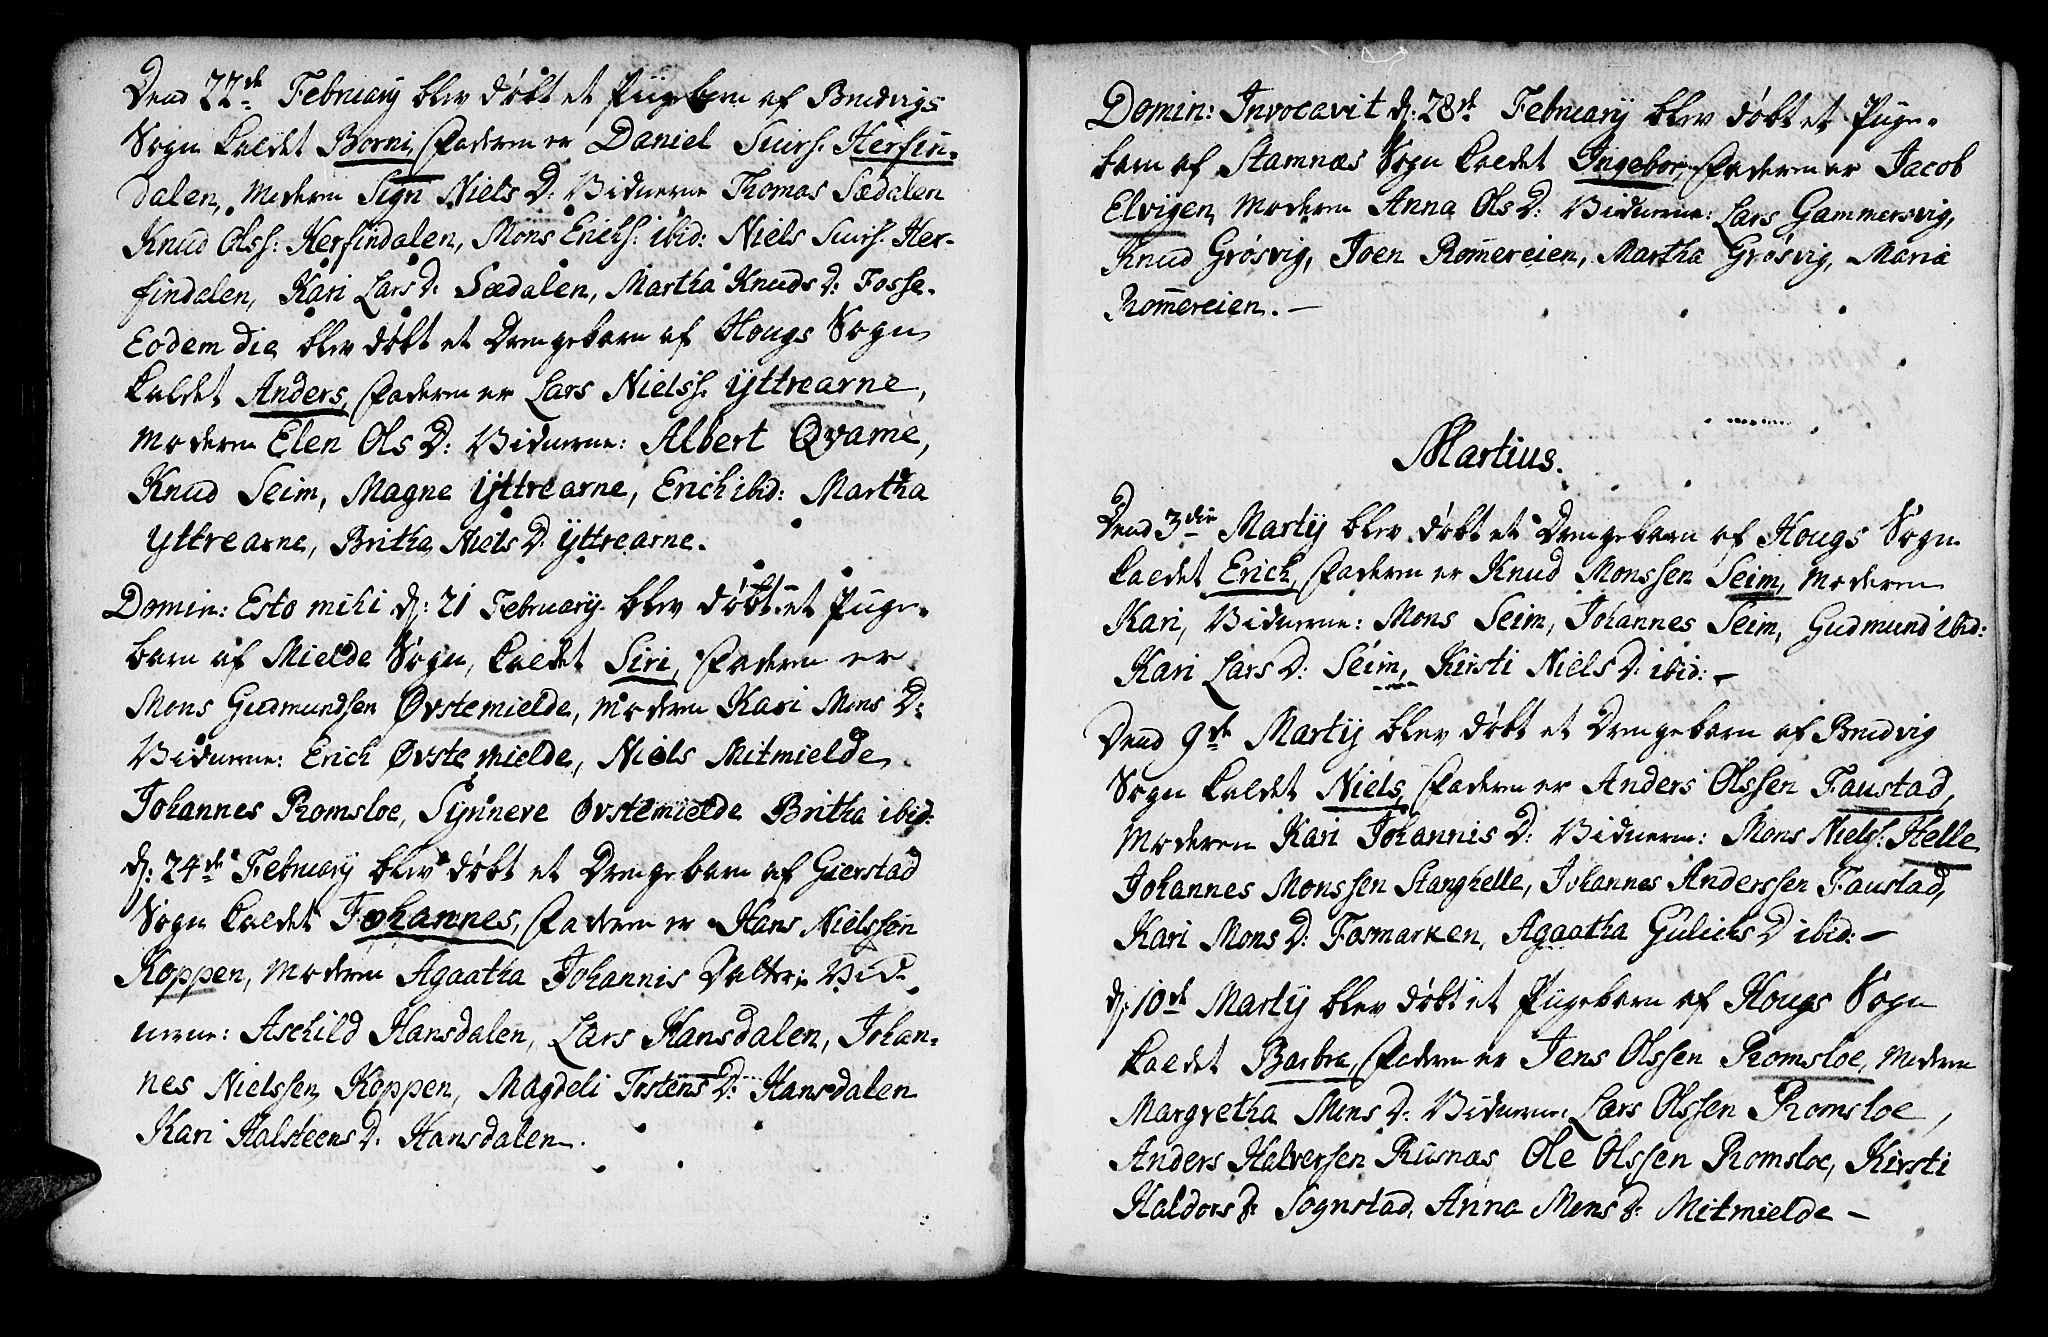 Dend 22de February blev døbt et Pigebarn af Brudvigs
Sogn kaldet Borni, Faderen er Daniel Siurs. Herfin-
dalen, Moderen Sign Niels D: Vidnerne Thomas Sædalen
Knud Olss: Herfindalen, Mons Erichs. ibid: Niels Siurs. Her-
findalen, Kari Lars D: Sædalen, Martha Knuds D: Fosse.
Eodem die blev døbt et Drengebarn af Hougs Sogn
kaldet Anders, Faderen er Lars Nielss. Yttrearne,
Moderen Elen Ols D: Vidnerne: Albert Qvame,
Knud Seim, Magne Yttrearne, Erich ibid: Martha
Yttrearne, Britha Niels D: Yttrearne.
Domin: Esto mihi d: 21 February blev døbt et Pige-
barn af Mielde Sogn, kaldet Siri, Faderen er
Mons Gudmundsen Øvstemielde, Moderen Kari Mons D:
Vidnerne: Erich Øvstemielde, Niels Mitmielde
Johannes Romsloe, Synneve Øvstemielde Britha ibid:
d: 24de February blev døbt et Drengebarn af Gierstad
Sogn kaldet Johannes, Faderen er Hans Nielssen
Koppen, Moderen Agaatha Johannis Datter: Vid-
nerne: Aschild Hansdalen, Lars Hansdalen, Johan-
nes Nielssen Koppen, Magdeli Tostens D: Hansdalen
Kari Halsteens D: Hansdalen.
Domin: Invocavit d: 28de February blev døbt et Pige-
barn af Stamnæs Sogn kaldet Ingebor, Faderen er Jacob
Elvigen, Moderen Anna Ols D: Vidnerne: Lars Gammersvig,
Knud Grøsvig, Joen Romereien, Martha Grøsvig, Maria
Romereien. -
Martius.
Dend 3die Martij blev døbt et Drengebarn af Hougs Sogn
kaldet Erich, Faderen er Knud Monssen Seim, Moderen
Kari, Vidnerne: Mons Seim, Johannes Seim, Gudmund ibid:
Kari Lars D: Seim, Kirsti Niels D: ibid: -
Dend 9de Martij blev døbt et Drengebarn af Brudvig
Sogn kaldet Niels, Faderen er Anders Olssen Faustad,
Moderen Kari Johannis D: Vidnerne: Mons Niels: Helle
Johannes Monssen Stanghelle, Johannes Anderssen Faustad,
Kari Mons D: Fosmarken, Agaatha Gulichs D ibid: -
d: 10de Martij blev døbt et Pigebarn af Hougs Sogn
kaldet Barbra, Faderen er Jens Olssen Romsloe, Moderen
Margretha Mons D: Vidnerne: Lars Olssen Romsloe,
Anders Halversen Rusnæs Ole Olssen Romsloe, Kirsti
Haldors D: Sognstad, Anna Mons D: Mitmielde -